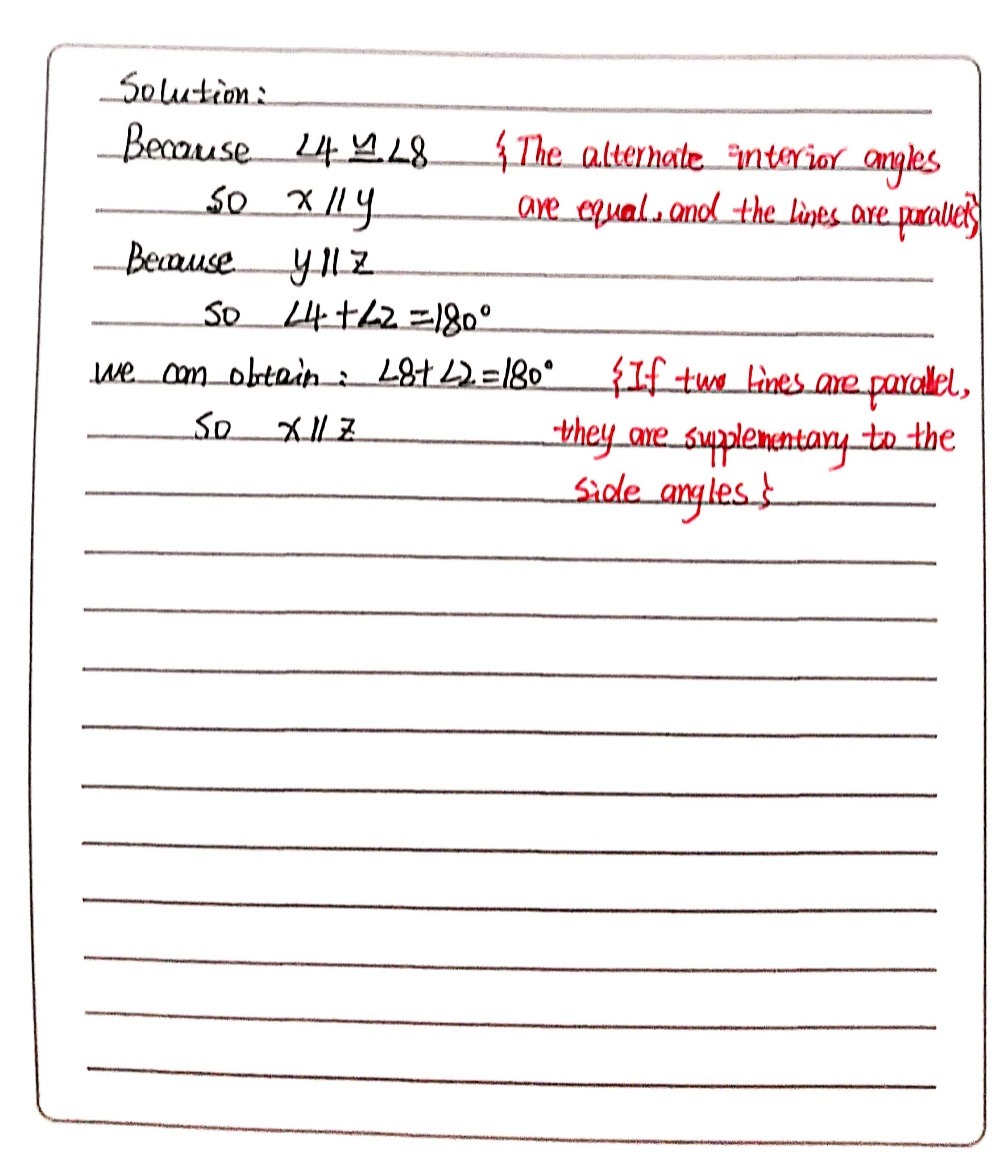 Solution:
Because ∠4 ≌ ∠8 {The alternate interior angles
so x // y are equal, and the lines are parallel}
Because y // z
so ∠4+∠2=180°
we can obtain: ∠8+∠2=180° {If two lines are parallel,
so x // z they are supplementary to the
side angles}